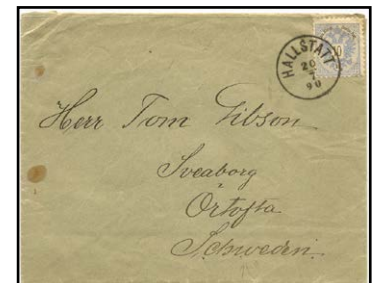 HALLSTATT
20
7
90
Herr Tom Gibson
Sveaborg
Örtofta
Schweden